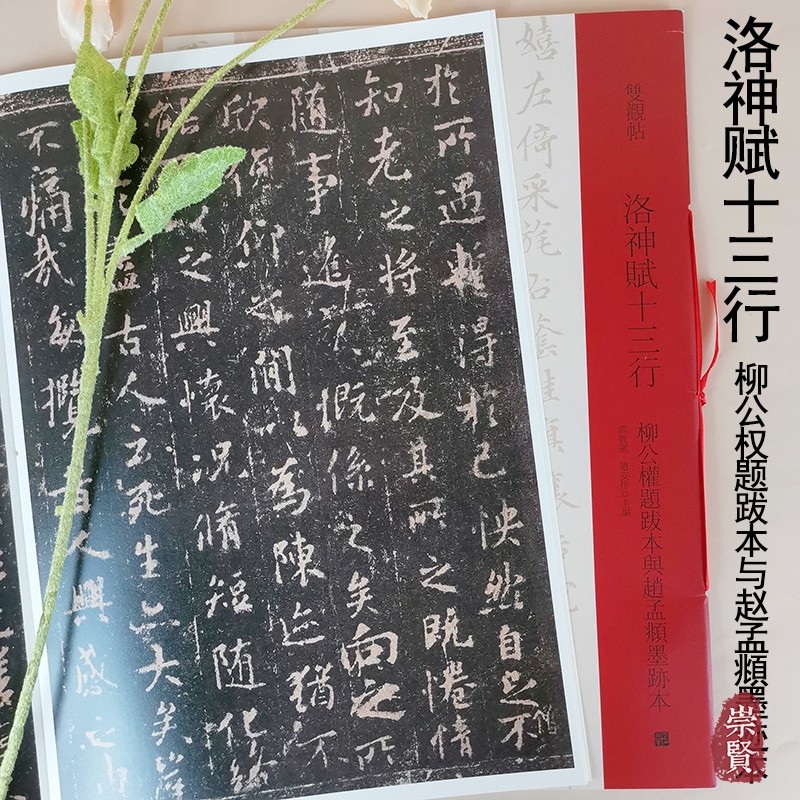 洛神赋十三行
柳公权题跋本与赵孟頫墨迹本
崇賢
雙觀帖
洛神賦十三行
柳公權題跋本與趙孟頫墨跡本
嬉左倚采旄右蔭桂旗
於所遇蹔得於己怏然自足不
知老之將至及其所之既惓情
隨事遷感慨係之矣向之所
欣俛仰之間以為陳迹猶不
能之興懷況脩短隨化終
盡古人云死生亦大矣豈
不痛哉每攬昔人興感之由